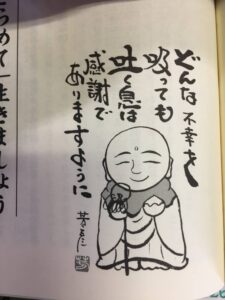 どんな不幸を
吸っても
吐く息は
感謝で
ありますように
つめて生きましょう